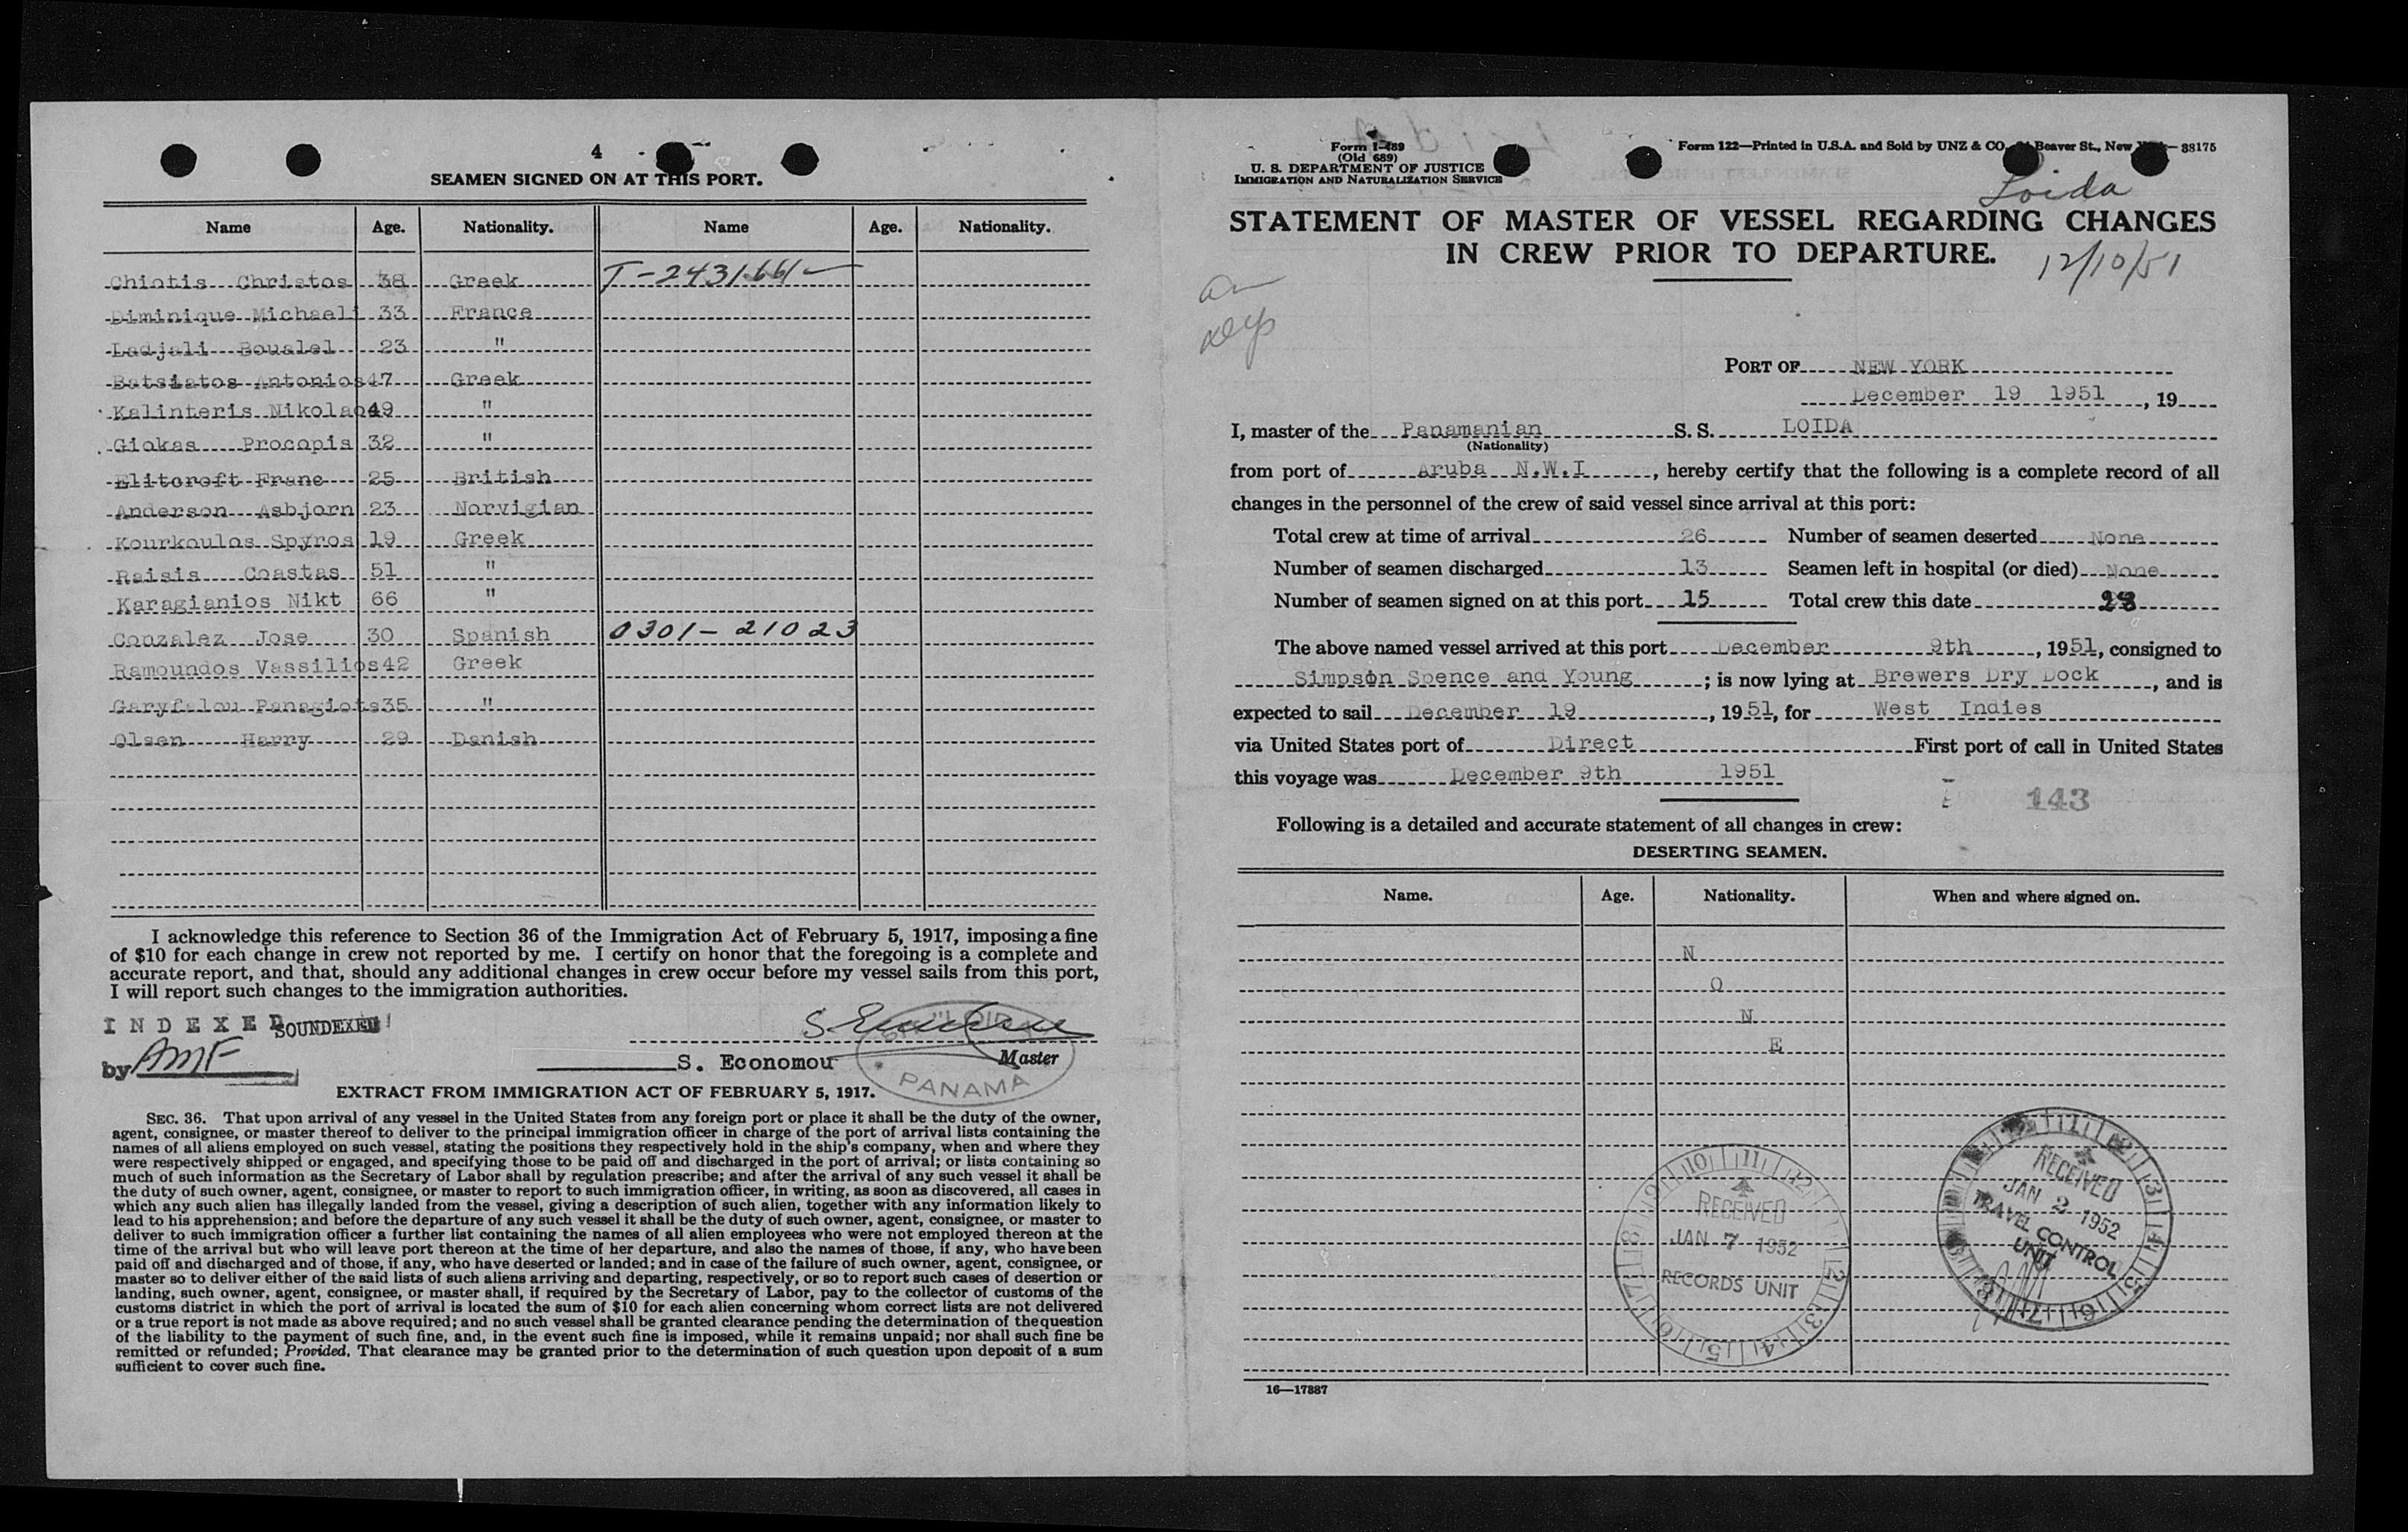 4
SEAMEN SIGNED ON AT THIS PORT.
Name Age. Nationality. Name Age. Nationality.
Chiotis Christos 38 Greek T-2431661
Diminique Michaeli 33 France
Ladjali Boualel 23 "
Batsiatos Antonios 47 Greek
Kalinteris Nikolaos 49 "
Giokas Procopis 32 "
Elitcroft Franc 25 British
Anderson Asbjorn 23 Norvigian
Kourkoulos Spyros 19 Greek
Raisis Coastas 51 "
Karagianios Nikt 66 "
Conzalez Jose 30 Spanish 0301-21023
Ramoundos Vassilios 42 Greek
Garyfalou Panagiots 35 "
Olsen Harry 29 Danish
I acknowledge this reference to Section 36 of the Immigration Act of February 5, 1917, imposing a fine
of $10 for each change in crew not reported by me. I certify on honor that the foregoing is a complete and
accurate report, and that, should any additional changes in crew occur before my vessel sails from this port,
I will report such changes to the immigration authorities.
INDEXED SOUNDEXED
by AMF
S. Economou Master
PANAMA
EXTRACT FROM IMMIGRATION ACT OF FEBRUARY 5, 1917.
SEC. 36. That upon arrival of any vessel in the United States from any foreign port or place it shall be the duty of the owner,
agent, consignee, or master thereof to deliver to the principal immigration officer in charge of the port of arrival lists containing the
names of all aliens employed on such vessel, stating the positions they respectively hold in the ship's company, when and where they
were respectively shipped or engaged, and specifying those to be paid off and discharged in the port of arrival; or lists containing so
much of such information as the Secretary of Labor shall by regulation prescribe; and after the arrival of any such vessel it shall be
the duty of such owner, agent, consignee, or master to report to such immigration officer, in writing, as soon as discovered, all cases in
which any such alien has illegally landed from the vessel, giving a description of such alien, together with any information likely to
lead to his apprehension; and before the departure of any such vessel it shall be the duty of such owner, agent, consignee, or master to
deliver to such immigration officer a further list containing the names of all alien employees who were not employed thereon at the
time of the arrival but who will leave port thereon at the time of her departure, and also the names of those, if any, who have been
paid off and discharged and of those, if any, who have deserted or landed; and in case of the failure of such owner, agent, consignee, or
master so to deliver either of the said lists of such aliens arriving and departing, respectively, or so to report such cases of desertion or
landing, such owner, agent, consignee, or master shall, if required by the Secretary of Labor, pay to the collector of customs of the
customs district in which the port of arrival is located the sum of $10 for each alien concerning whom correct lists are not delivered
or a true report is not made as above required; and no such vessel shall be granted clearance pending the determination of the question
of the liability to the payment of such fine, and, in the event such fine is imposed, while it remains unpaid; nor shall such fine be
remitted or refunded; Provided, That clearance may be granted prior to the determination of such question upon deposit of a sum
sufficient to cover such fine.
Form I-489
(Old 689)
U. S. DEPARTMENT OF JUSTICE
IMMIGRATION AND NATURALIZATION SERVICE
Form 122—Printed in U.S.A. and Sold by UNZ & CO. Beaver St., New —38175
Loida
STATEMENT OF MASTER OF VESSEL REGARDING CHANGES
IN CREW PRIOR TO DEPARTURE.
12/10/51
PORT OF NEW YORK
December 19 1951, 19
I, master of the Panamanian S. S. LOIDA
(Nationality)
from port of Aruba N.W.I, hereby certify that the following is a complete record of all
changes in the personnel of the crew of said vessel since arrival at this port:
Total crew at time of arrival 26 Number of seamen deserted None
Number of seamen discharged 13 Seamen left in hospital (or died) None
Number of seamen signed on at this port 15 Total crew this date 28
The above named vessel arrived at this port December 9th, 1951, consigned to
Simpson Spence and Young; is now lying at Brewers Dry Dock, and is
expected to sail December 19, 1951, for West Indies
via United States port of Direct First port of call in United States
this voyage was December 9th 1951
143
Following is a detailed and accurate statement of all changes in crew:
DESERTING SEAMEN.
Name. Age. Nationality. When and where signed on.
N
O
N
E
RECEIVED
JAN 7 1952
RECORDS UNIT
RECEIVED
JAN 2 1952
TRAVEL CONTROL
UNIT
16—17887